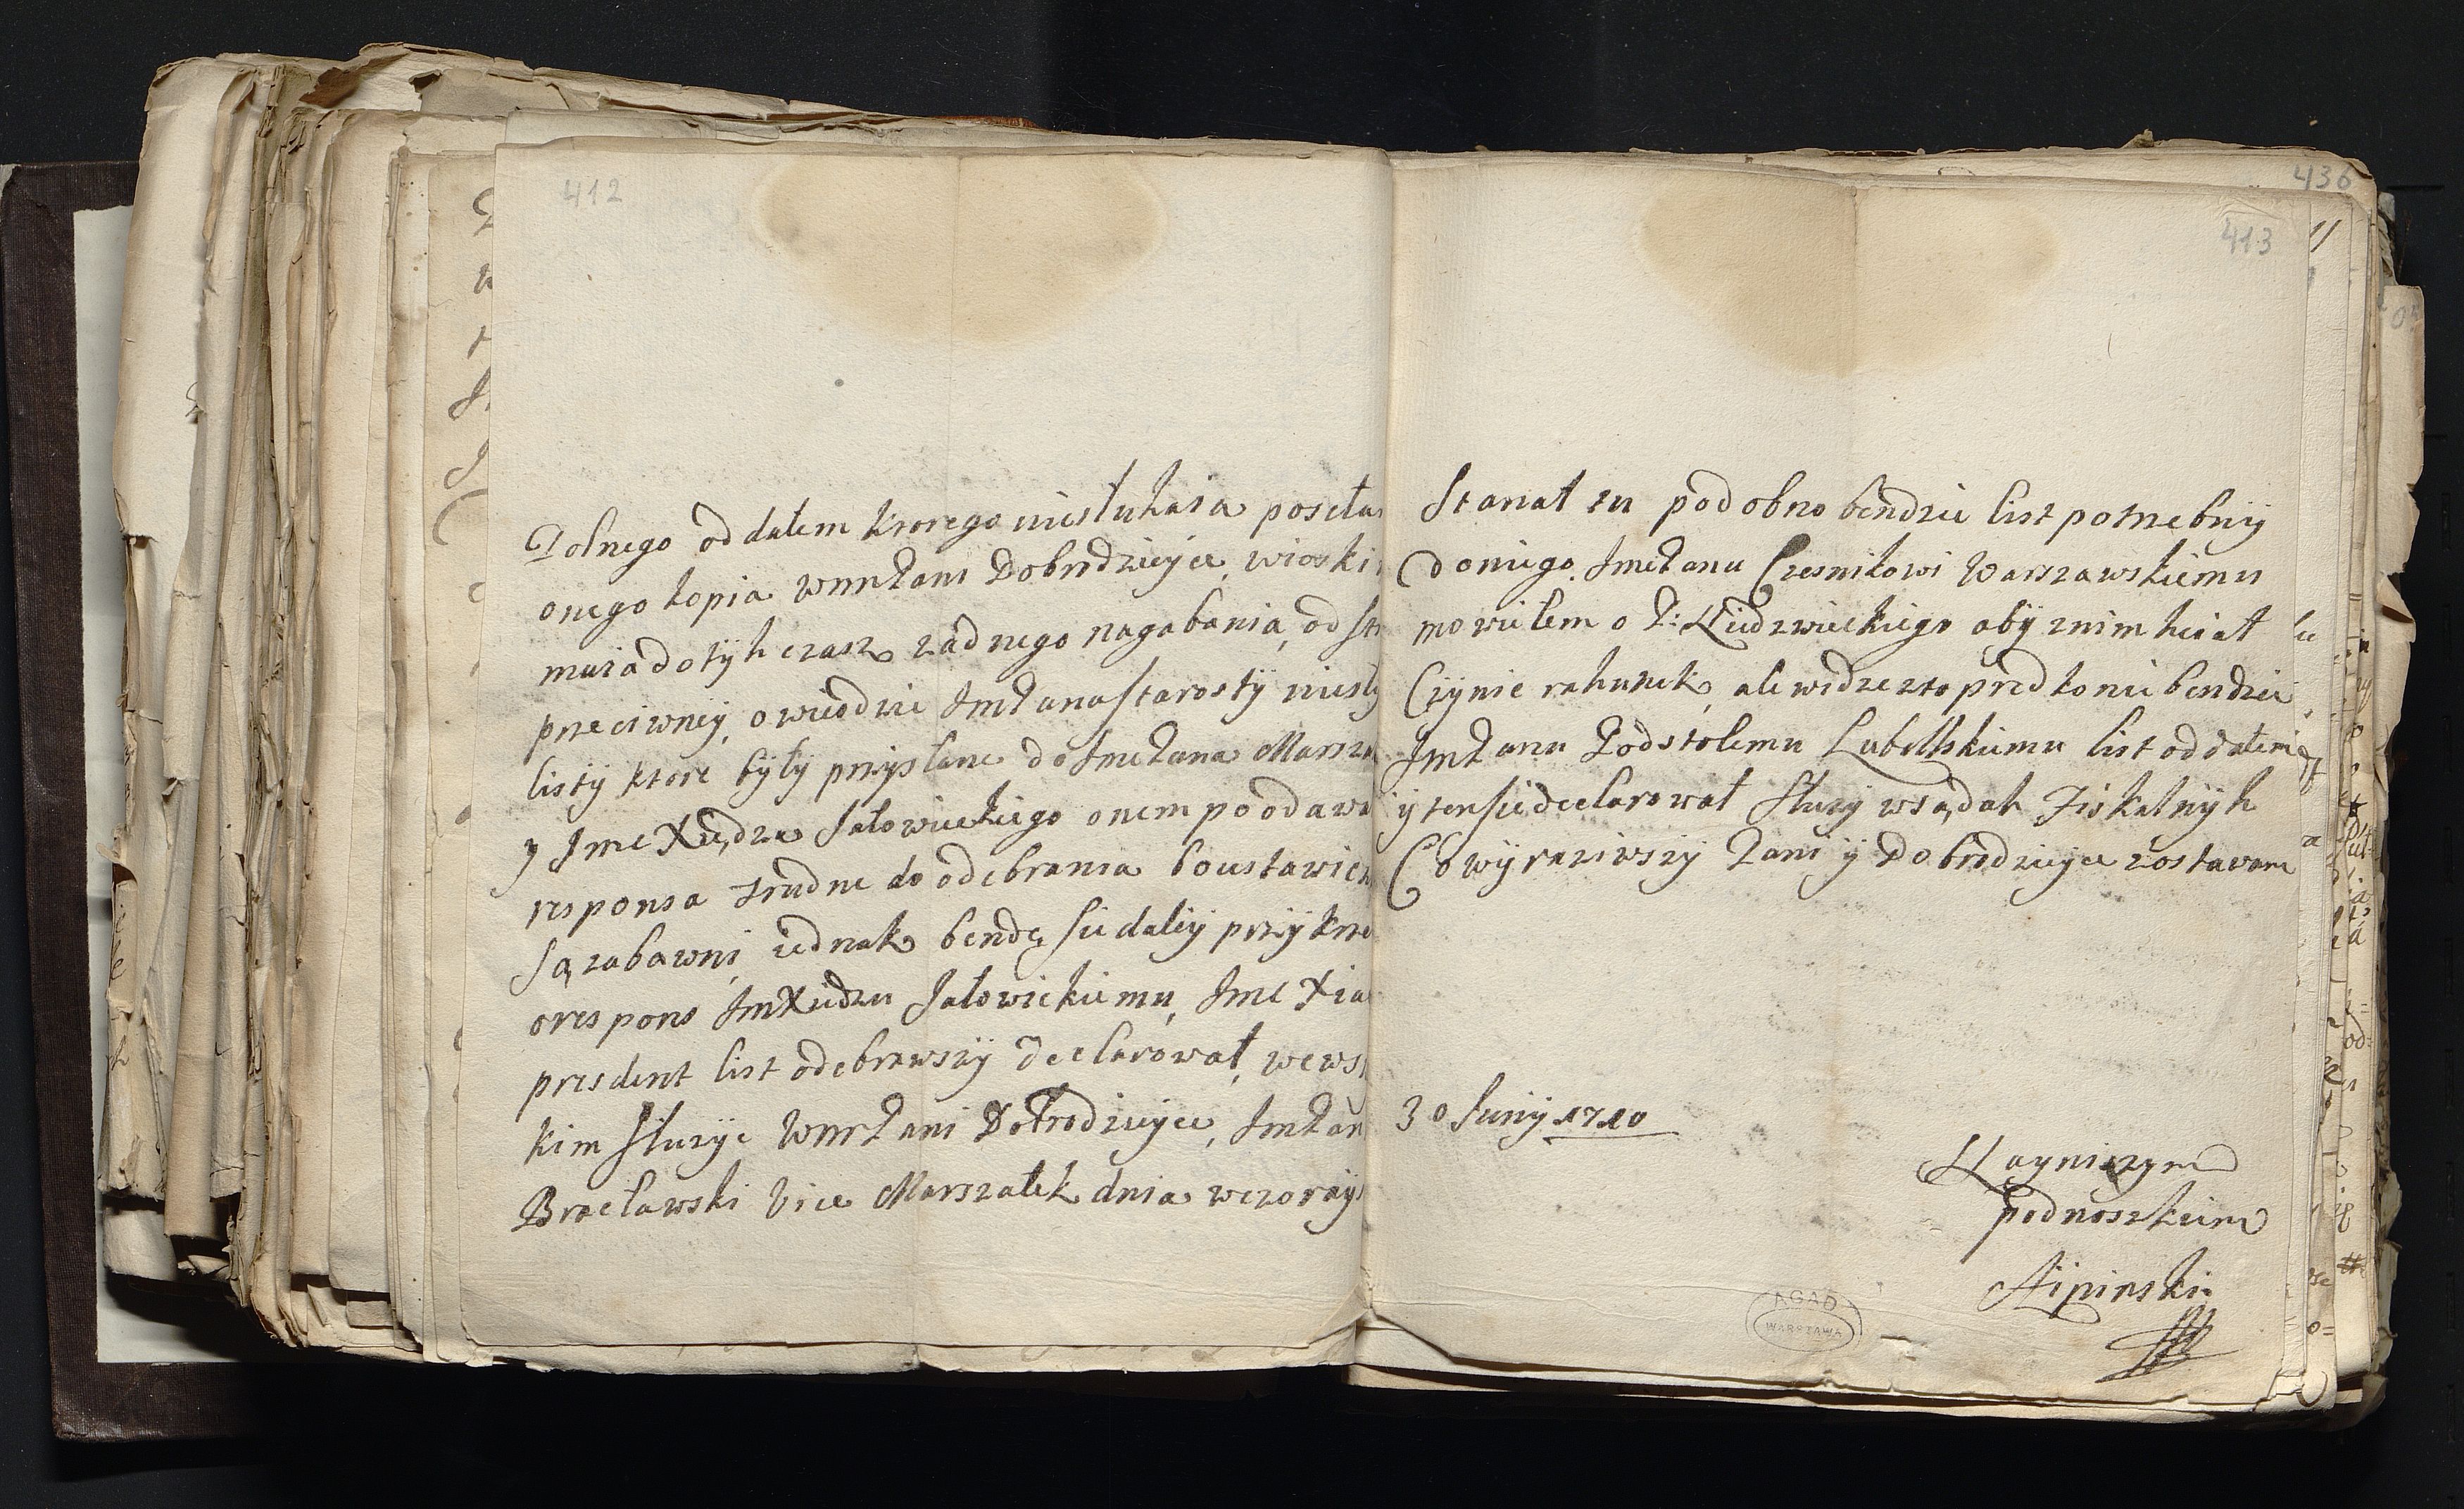 412
Polnego oddałem ktorego niesłuhaia poseła
onego kopia WmPani Dobrodzieyce, wioski
maia dotyh czasz zadnego nagabania, od str
przeciwney, owieodzie ImPana Starosty niesły
listy ktore były przysłane do ImePana Marsza
y Ime Xiędza Sałowieckiego onem poodawa
responsa trudne do odebrania bo ustawicz
są zabawni iednak bendę sie daliy przykrz
orespons ImXiedzu Sałowickiemu, Ime Xia
presdent list odebrawszy declarował, wews
kim słuzyc WmPani Dobrodzieyce, ImPan
Bracławski Vice Marszałek dnia wczorays
436
413
Stanał tu podobno bendzie list potrzebny
doniego, ImePanu Czesnikowi Warszawskiemu
mowiełem o P: Niedzwieckiego aby znim hciał
Czynic rahunek, ale widze zto prędko nie bendzie
ImPanu Podstolemu Lubellskiemu list oddałem
y ten sie declarował słuzy wsądah Fiskalnyh
Co wyraziwszy Paniy Dobrodzieyce zostawam
30 Juny 1710
Nayniszym
podnoszkiem
Lipinski
AGAD
WARSZAWA